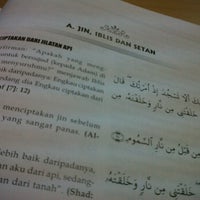 A. JIN, IBLIS DAN SETAN
CIPTAKAN DARI JILATAN API
firman: "Apakah yang meng-
bersujud (kepada Adam) di
menyuruhmu?" menjawab Iblis
baik daripadanya: Engkau ciptakan
dia Engkau ciptakan dari
[7]: 12)
menciptakan jin sebelum
yang sangat panas. (Al-
lebih baik daripadanya,
an aku dari api, sedang-
an dari tanah". (Shad:
قَالَ مَا مَنَعَكَ أَلَّا تَسْجُدَ إِذْ أَمَرْتُكَ قَالَ
خَلَقْتَنِي مِن نَّارٍ وَخَلَقْتَهُ
مِن قَبْلُ مِن نَّارِ السَّمُومِ
خَلَقْتَنِي مِن نَّارٍ وَخَلَقْتَهُ